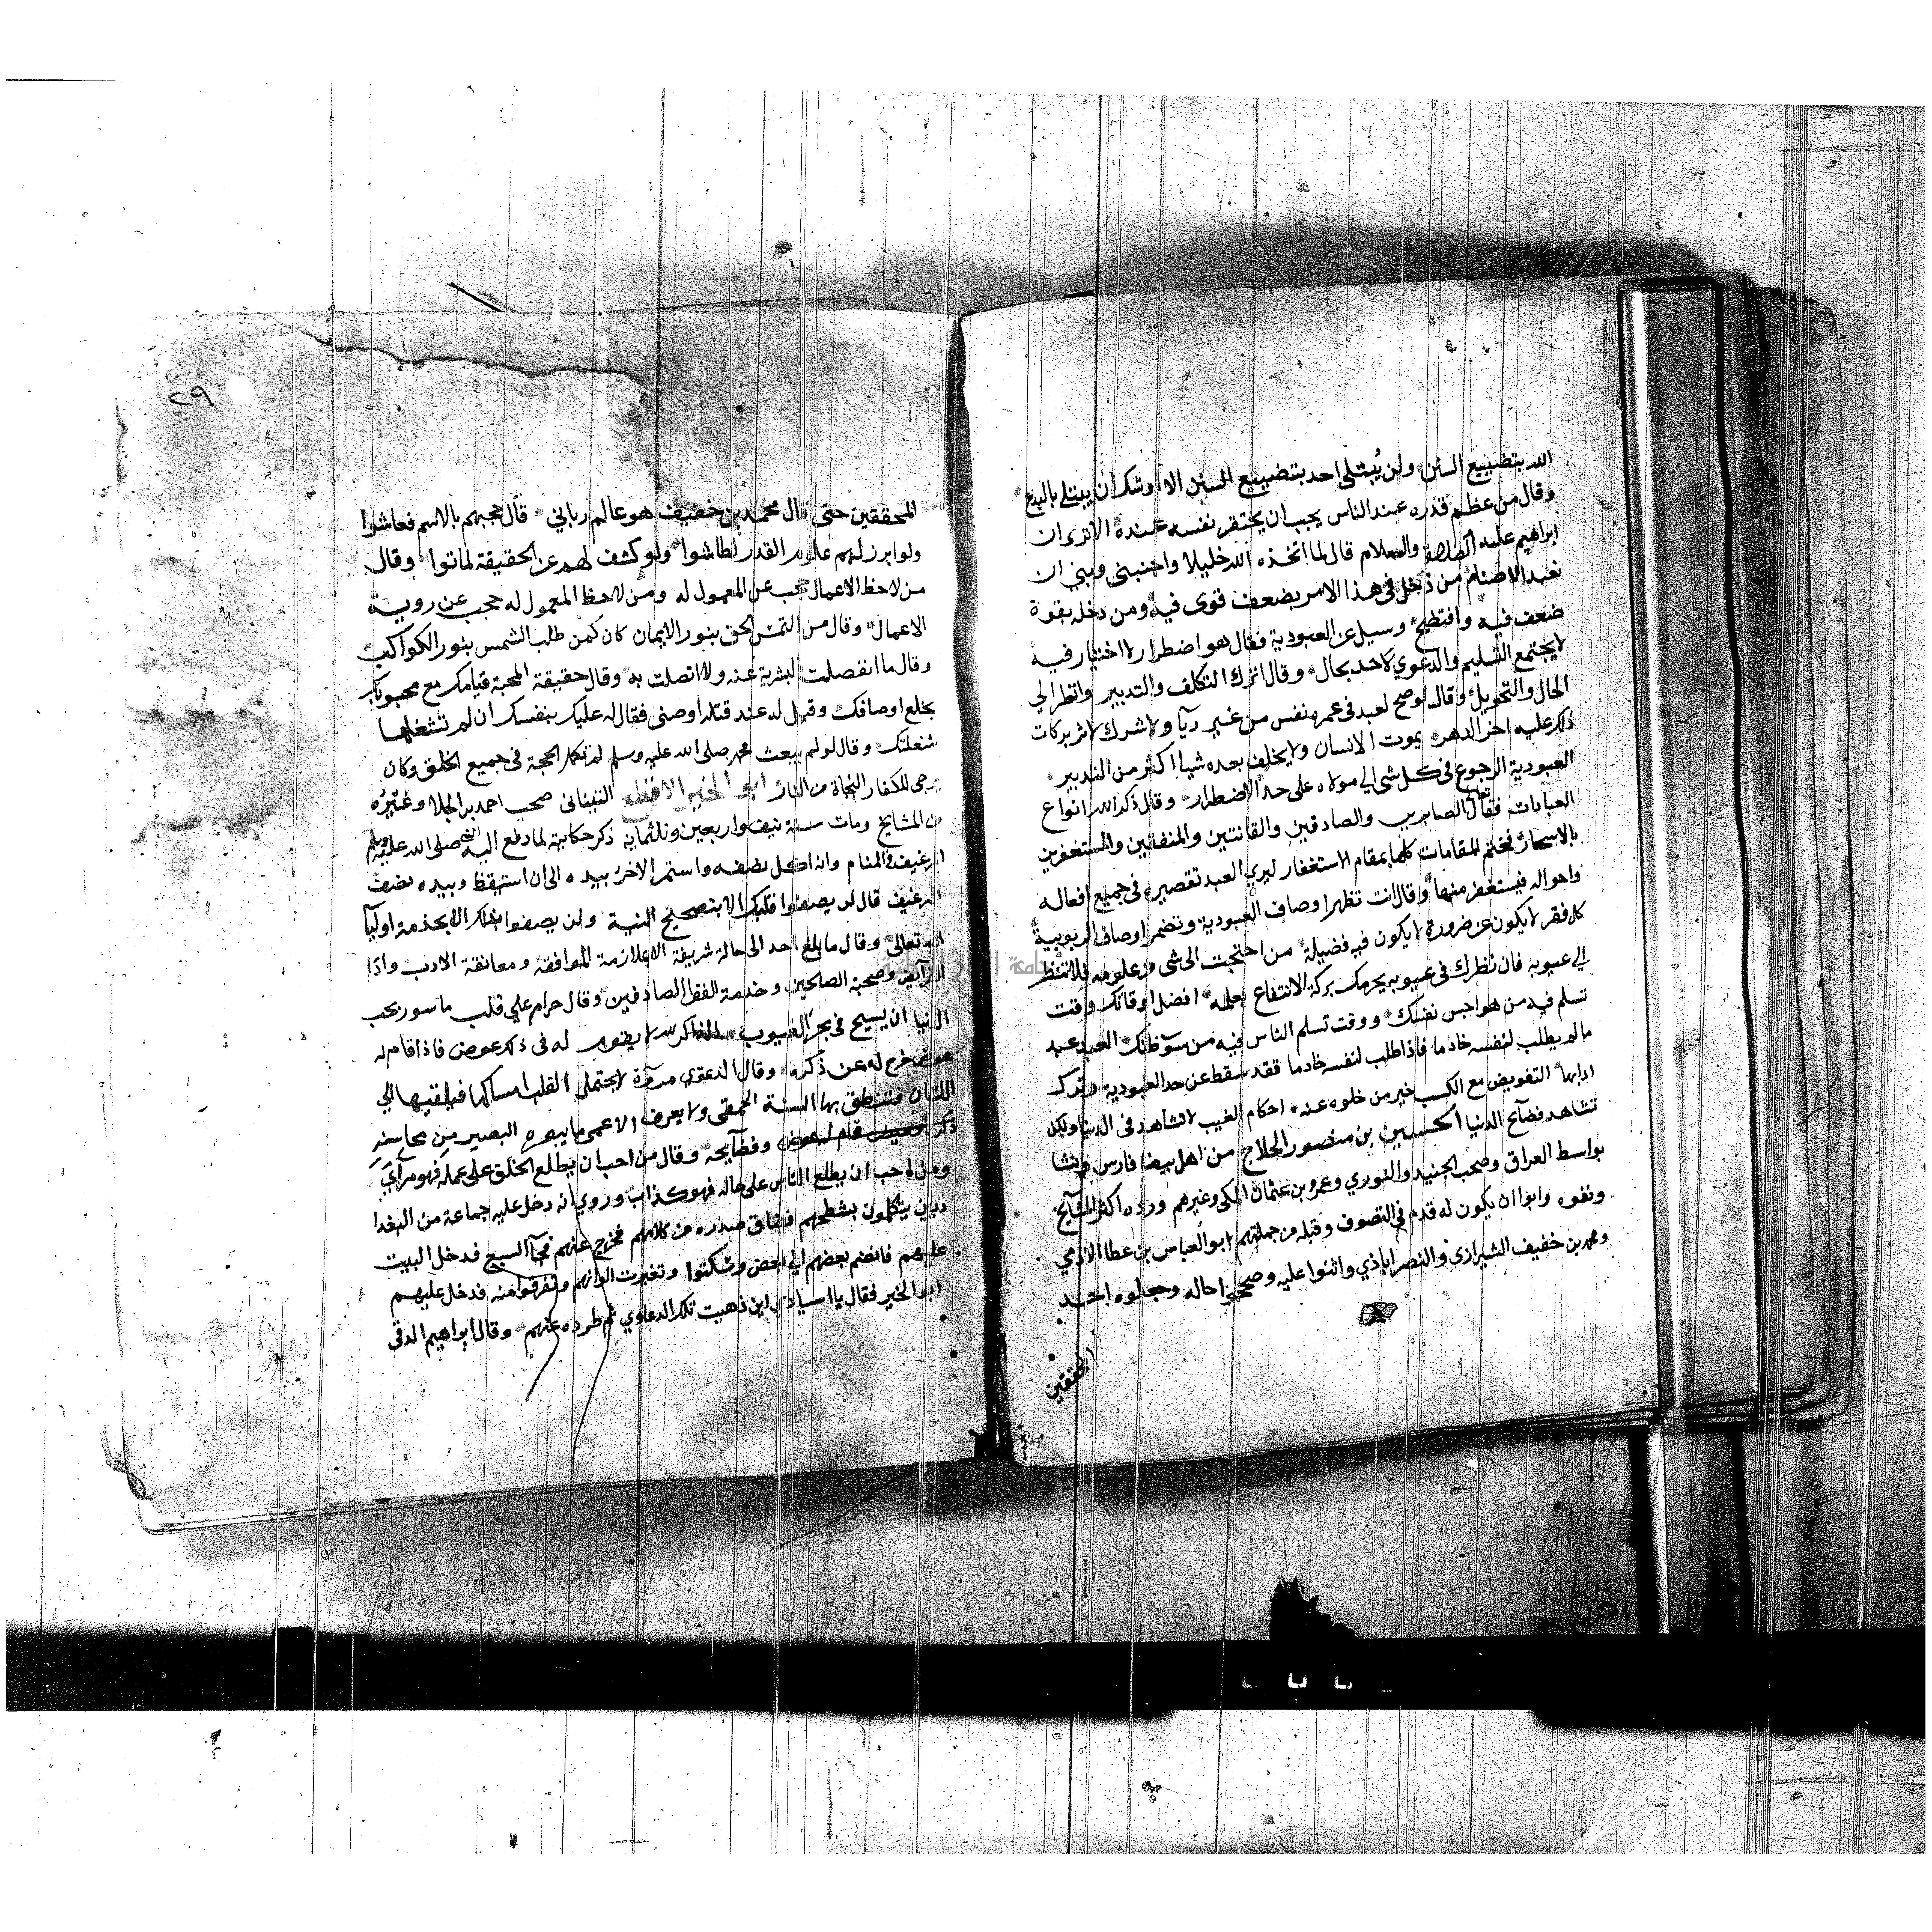 الله بتضييع السنن ولن يُبتلى احد بتضييع السنن الا اوشك ان يبتلى بالبدع
وقال من عظم قدره عند الناس يجب ان يحتقر نفسه عنده الا ترى ان
ابراهيم عليه الصلاة والسلام قال لما اتخذه الله خليلا واجنبنى وبني ان
نعبد الاصنام من دخل فى هذا الامر بضعف قوى فيه ومن دخله بقوة
ضعف فيه وافتضح وسيل عن العبودية فقال هو اضطرار لا اختيار فيه
لا يجتمع التسليم والدعوي لاحد بحال وقال اترك التكلف والتدبير وانظر الى
الحال والتحويل وقال لو صح لعبد فى عمره نفس من غير ريآ ولا شرك لاثر بركات
ذلك عليه اخر الدهر يموت الانسان ولا يخلف بعده شيا اكثر من التدبير
العبودية الرجوع فى كل شى الي مولاه على حد الاضطرار وقال ذكر الله انواع
العبادات فقال الصابرين والصادقين والقانتين والمنفقين والمستغفرين
بالاسحار فختم المقامات كلها بمقام الاستغفار ليري العبد تقصيره فى جميع افعاله
واحواله فيستغفر منها وقال انت تظهر اوصاف العبودية وتضمر اوصاف الربوبية
كل فقر لا يكون عن ضرورة لا يكون فيه فضيلة من احتجت الى شى من علومه فلا تنظر
الي عيوبه فان نظرك فى عيوبه يحرمك بركة الانتفاع بعلمه افضل اوقاتك وقت
تسلم فيه من هواجس نفسك ووقت تسلم الناس فيه من سو ظنك العبد عبد
مالم يطلب لنفسه خادما فاذا طلب لنفسه خادما فقد سقط عن حد العبودية وترك
ادابها التفويض مع الكسب خير من خلوه عنه احكام الغيب لا تشاهد فى الدنيا ولكن
تشاهد فضآئح الدنيا الحسين بن منصور الحلاج من اهل بيضا فارس ونشا
بواسط العراق وصحب الجنيد والنوري وعمرو بن عثمان المكى وغيرهم ورده اكثر المشآيخ
ونفوه وابوا ان يكون له قدم في التصوف وقبله من جملتهم ابو العباس بن عطا الادمي
ومحمد بن خفيف الشيرازى والنصراباذي واثنوا عليه وصححوا حاله وجعلوه احد
المحققين
٢٩
المحققين حتى قال محمد بن خفيف هو عالم رباني قال حجبهم بالاسم فعاشوا
ولو ابرز لهم علوم القدر لطاشوا ولو كشف لهم عن الحقيقة لماتوا وقال
من لاحظ الاعمال حجب عن المعمول له ومن لاحظ المعمول له حجب عن روية
الاعمال وقال من التمس الحق بنور الايمان كان كمن طلب الشمس بنور الكواكب
وقال ما انفصلت البشرية عنه ولا اتصلت به وقال حقيقة المحبة قيامك مع محبوبك
بخلع اوصافك وقيل له عند قتله اوصنى فقال له عليك بنفسك ان لم تشغلها
شغلتك وقال لو لم يبعث محمد صلى الله عليه وسلم لم تكمل الحجة فى جميع الخلق وكان
يرجى للكفار النجاة من النار ابو الخير الاقطع التيناتى صحب احمد بن الجلا وغيره
من المشايخ ومات سنة نيف واربعين وثلثماية ذكر حكاية لما دفع اليه النبى صلى الله عليه وسلم
الرغيف فى المنام وانه اكل نصفه واستمر الاخر بيده الى ان استيقظ وبيده نصف
الرغيف قال لن يصفوا قلبك الا بتصحيح النية ولن يصفوا بدنك الا بخدمة اوليآ
الله تعالى وقال ما بلغ احد الى حالة شريفة الا بملازمة الموافقة ومعانقة الادب وادآ
الفرآئض وصحبة الصالحين وخدمة الفقرا الصادقين وقال حرام على قلب ماسور بحب
الدنيا ان يسيح فى بحر الغيوب الذاكر لله لا يقوم له فى ذكره عوض فاذا قام له
عوض خرج له عن ذكره وقال الدعوي رعونة لا يحتمل القلب امساكها فيلقيها الي
اللسان فتنطق بها السنة الحمقى ولا يعرف الاعمى ما يبصره البصير من محاسنه
وفضآيحه وقال من احب ان يطلع الخلق على عمله فهو مرآي
ومن احب ان يطلع الناس على حاله فهو كذاب وروي انه دخل عليه جماعة من البغدا
ديين يتكلمون بشطحهم فضاق صدره من كلامهم فخرج عنهم فجآ السبع فدخل البيت
عليهم فانضم بعضهم الي بعض وسكتوا وتغيرت الوانهم وتفرقوا منه فدخل عليهم
ابو الخير فقال يا اسيادى اين ذهبت تلك الدعاوي ثم طرده عنهم وقال ابراهيم الرقى